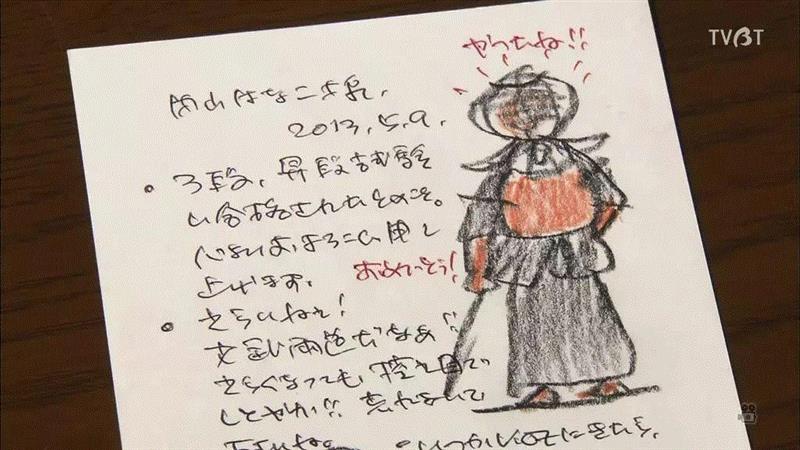 TVBT
やったね!!
2013.5.9.
• 3段、昇段試験
に合格されたとのこと。
心よりおよろこび申し
上げます。
おめでとう!
• えらいねぇ!
文武両道だなぁ!!
えらくなっても、控え目で
しとやか!! 忘れないで
下さいね。